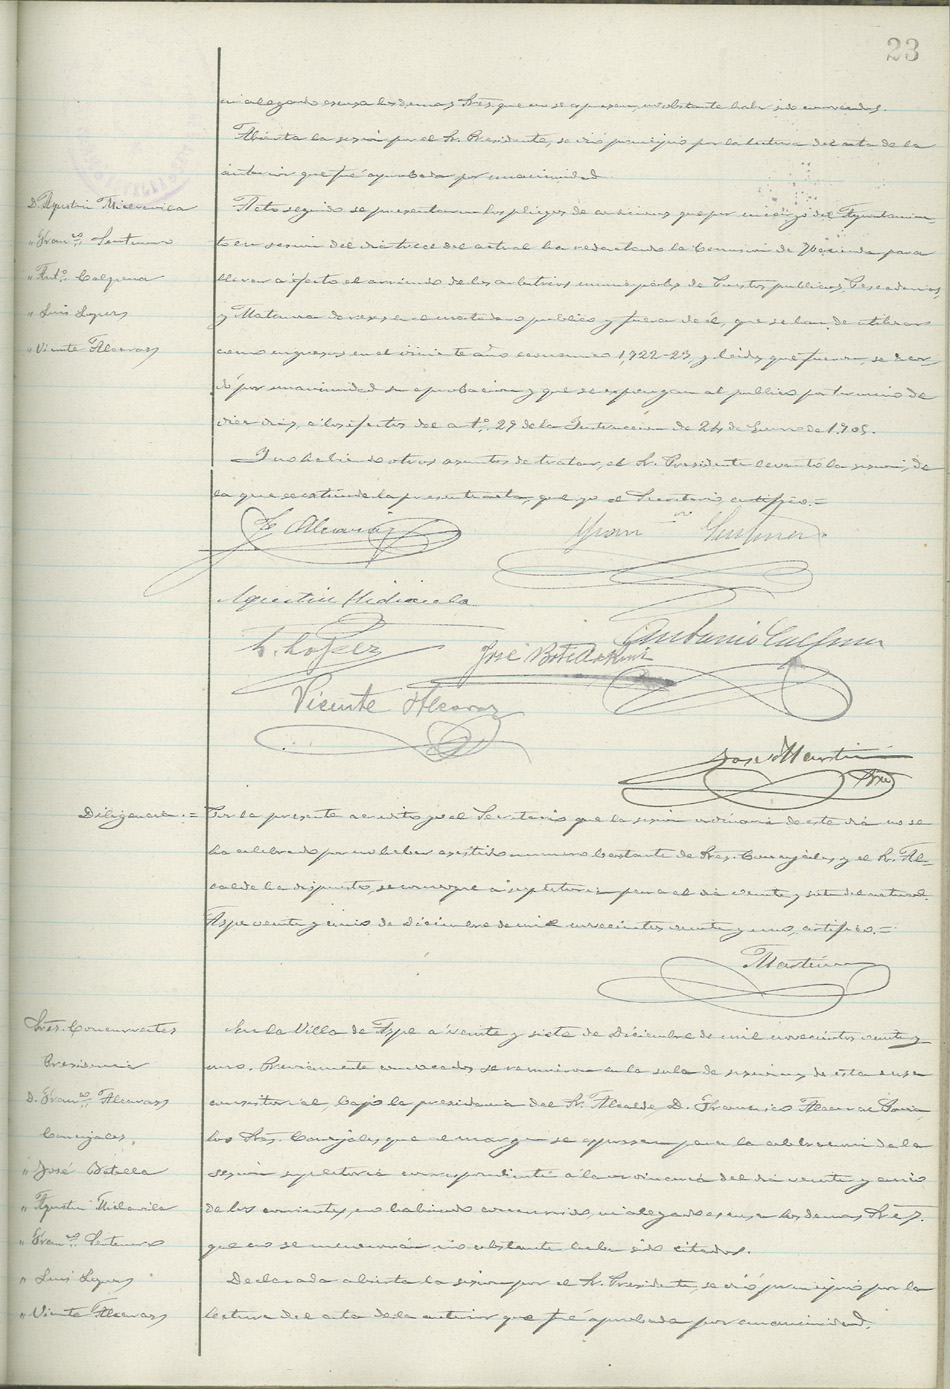 23
ni alegado escusa los demas Sres. que no se espresan, no obstante haber sido convocados.
Abierta la sesión por el Sr. Presidente, se dió principio por la lectura del acta de la
anterior que fué aprobada por unanimidad.
D. Agustin Mira
" Franco. Santmro
" Anto. Calpena
" Luis Lopez
" Vicente Alcaraz
Acto seguido se presentaron los pliegos de condiciones que por encargo del Ayuntamien-
to en sesion del dia trece del actual ha redactado la Comision de Hacienda para
llevar a efecto el arriendo de los arbitrios municipales de Puestos publicos, Pescaderias,
y Matanza de reses en el matadero publico y fuera de él, que se han de utilizar
como ingresos en el año economico 1922-23, y leidos que fueron, se acor-
dó por unanimidad su aprobacion y que se expongan al publico por termino de
diez dias, a los efectos del arto. 29 de la Instruccion de 24 de Enero de 1905.
Y no habiendo otros asuntos de tratar, el Sr. Presidente levantó la sesion, de
la que se extiende la presente acta, que yo el Secretario, certifico.=
F. Alcaraz
Agustin
L. Lopez
José Botella
Antonio Calpena
Vicente Alcaraz
José Martinez
Srio
Diligencia.=
Por la presente acredito yo el Secretario que la sesion ordinaria de este dia no se
ha celebrado por no haber asistido numero bastante de Sres. Concejales, y el Sr. Al-
calde ha dispuesto, se convoque a supletoria para el dia veinte y siete del actual.
Aspe veinte y cinco de Diciembre de mil novecientos veinte y uno, certifico.=
Martinez
Sres. Concurrentes
Presidencia
D. Franco. Alcaraz
Concejales,
" José Botella
" Agustin
" Franco.
" Luis Lopez
" Vicente Alcaraz
En la Villa de Aspe a veinte y siete de Diciembre de mil novecientos veinte y
uno. Previamente convocados se reunieron en la sala de sesiones de esta casa
consistorial, bajo la presidencia del Sr. Alcalde, D. Francisco Alcaraz
los Sres. Concejales que al margen se expresan para la celebracion de la
sesion supletoria correspondiente a la ordinaria del dia veinte y cinco
de los corrientes, no habiendo concurrido, ni alegado escusa los demas Sres.
que no se mencionan no obstante haber sido citados.
Declarada abierta la sesion por el Sr. Presidente, se dió principio por la
lectura del acta de la anterior que fué aprobada por unanimidad.